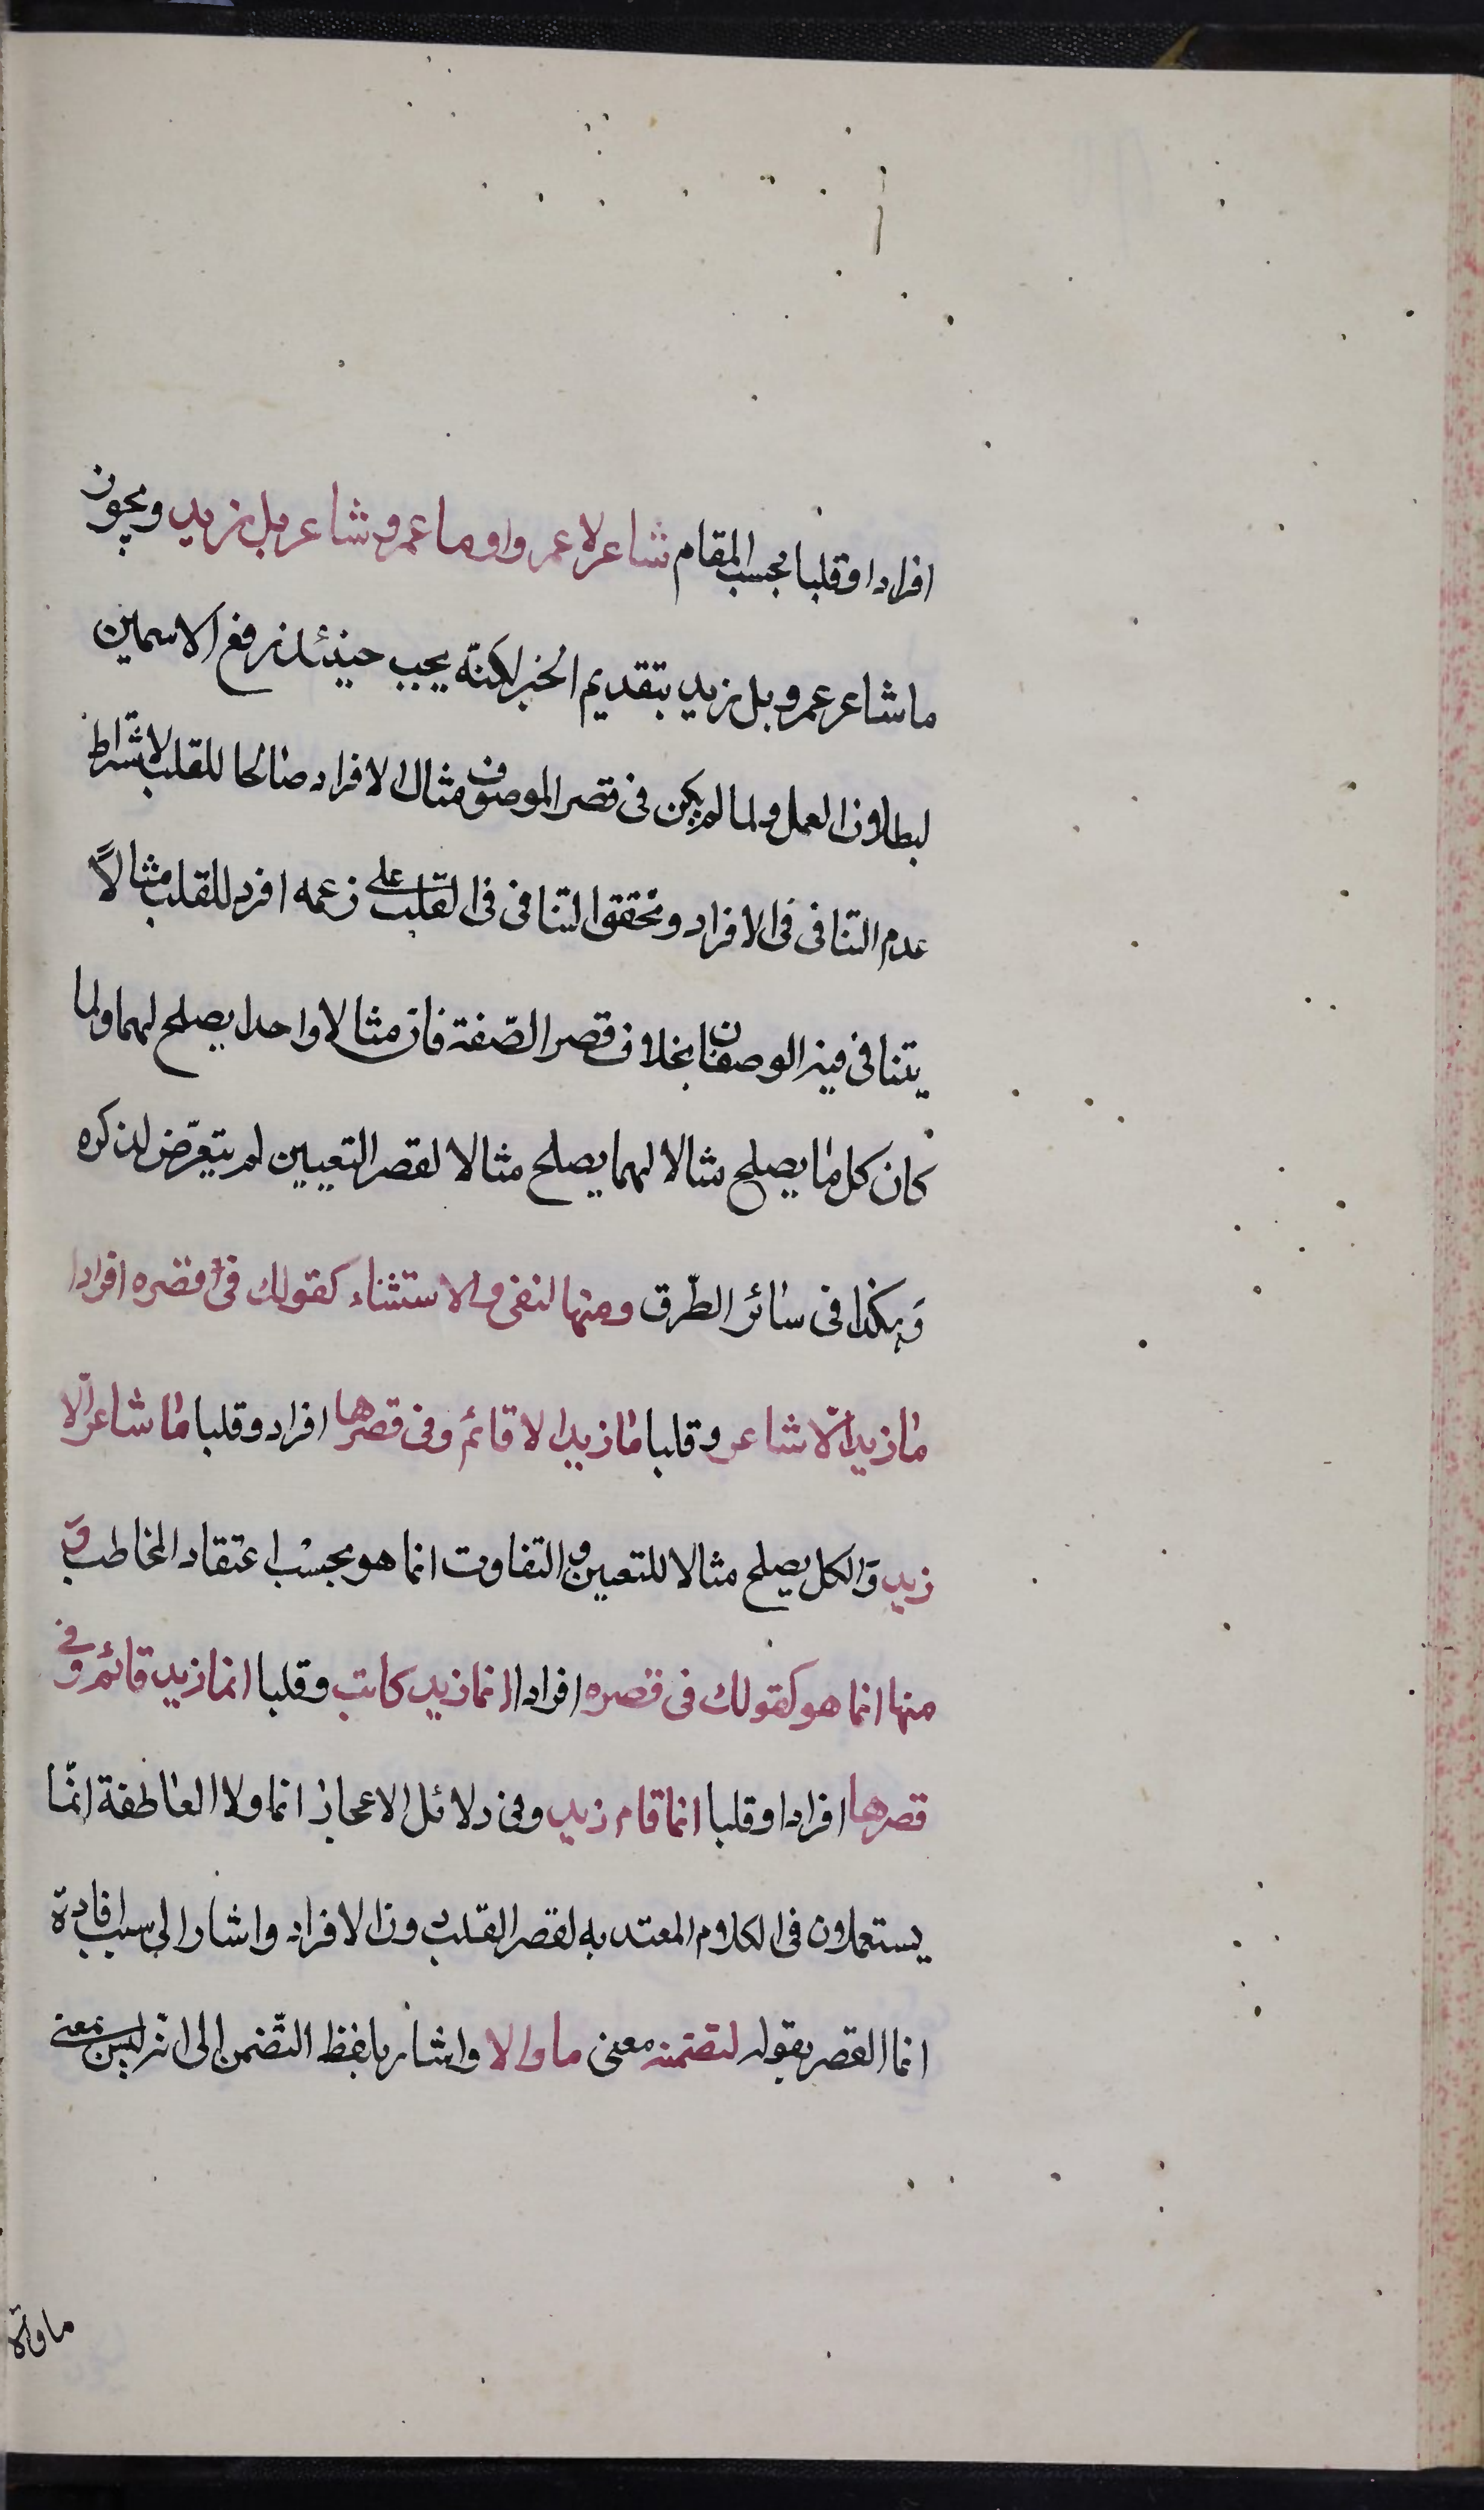 افرادا وقلبا بحسب المقام شاعر لا عمرو او ما عمرو شاعر بل زيد ويجوز
ما شاعر عمرو بل زيد بتقديم الخبر لكنّه يجب حينئذ رفع الاسمين
لبطلان العمل ولما لم يكن فى قصر الموصوف مثال الافراد صالحا للقلب لاشتراط
عدم التنافى فى الافراد وتحقق التنافى فى القلب على زعمه افرد للقلب مثالاً
يتنافى فيه الوصفان بخلاف قصر الصّفة فان مثالا واحدا يصلح لهما ولما
كان كل ما يصلح مثالا لهما يصلح مثالا لقصر التعيين لم يتعرّض لذكره
وَهكذا فى سائر الطّرق ومنها النفى والاستثناء كقولك فى قصره افرادا
ما زيد الّا شاعر وقلبا ما زيد الا قائم وفى قصرها افراد وقلبا ما شاعر الّا
زيد وَالكل يصلح مثالا للتعيين والتفاوت انما هو بحسْب اعتقاد المخاطب وَ
منها انما هو كقولك فى قصره افرادا انما زيد كاتب وقلبا انما زيد قائم وفى
قصرها افرادا وقلبا انما قام زيد وفى دلائل الاعجاز انما ولا العاطفة انّما
يستعملان فى الكلام المعتد به لقصر القلب دون الافراد واشار الى سبب افادة
انما القصر بقوله لتضمنه معنى ما والا واشار بلفظ التّضمن الى انه ليس بمعنى
ما والّا